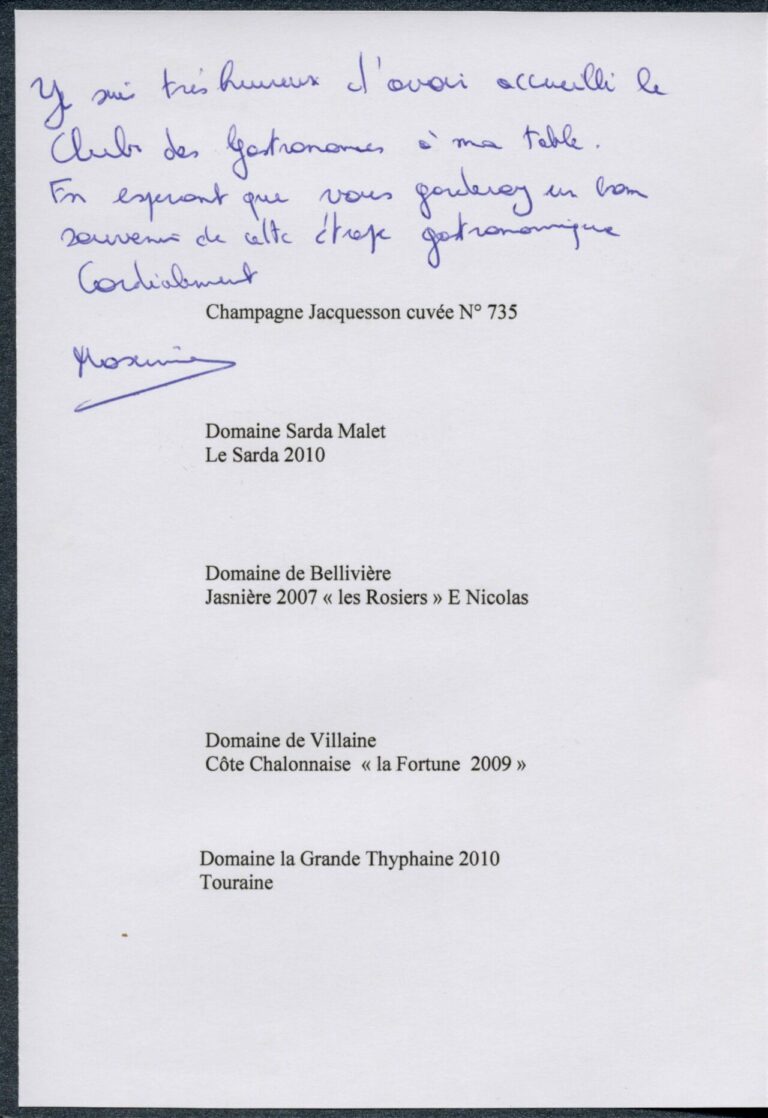 Je suis très heureux d'avoir accueilli le
Club des Gastronomes à ma table.
En esperant que vous garderez un bon
souvenir de cette étape gastronomique
Cordialement
Champagne Jacquesson cuvée N° 735
Domaine Sarda Malet
Le Sarda 2010
Domaine de Bellivière
Jasnière 2007 « les Rosiers » E Nicolas
Domaine de Villaine
Côte Chalonnaise « la Fortune 2009 »
Domaine la Grande Thyphaine 2010
Touraine